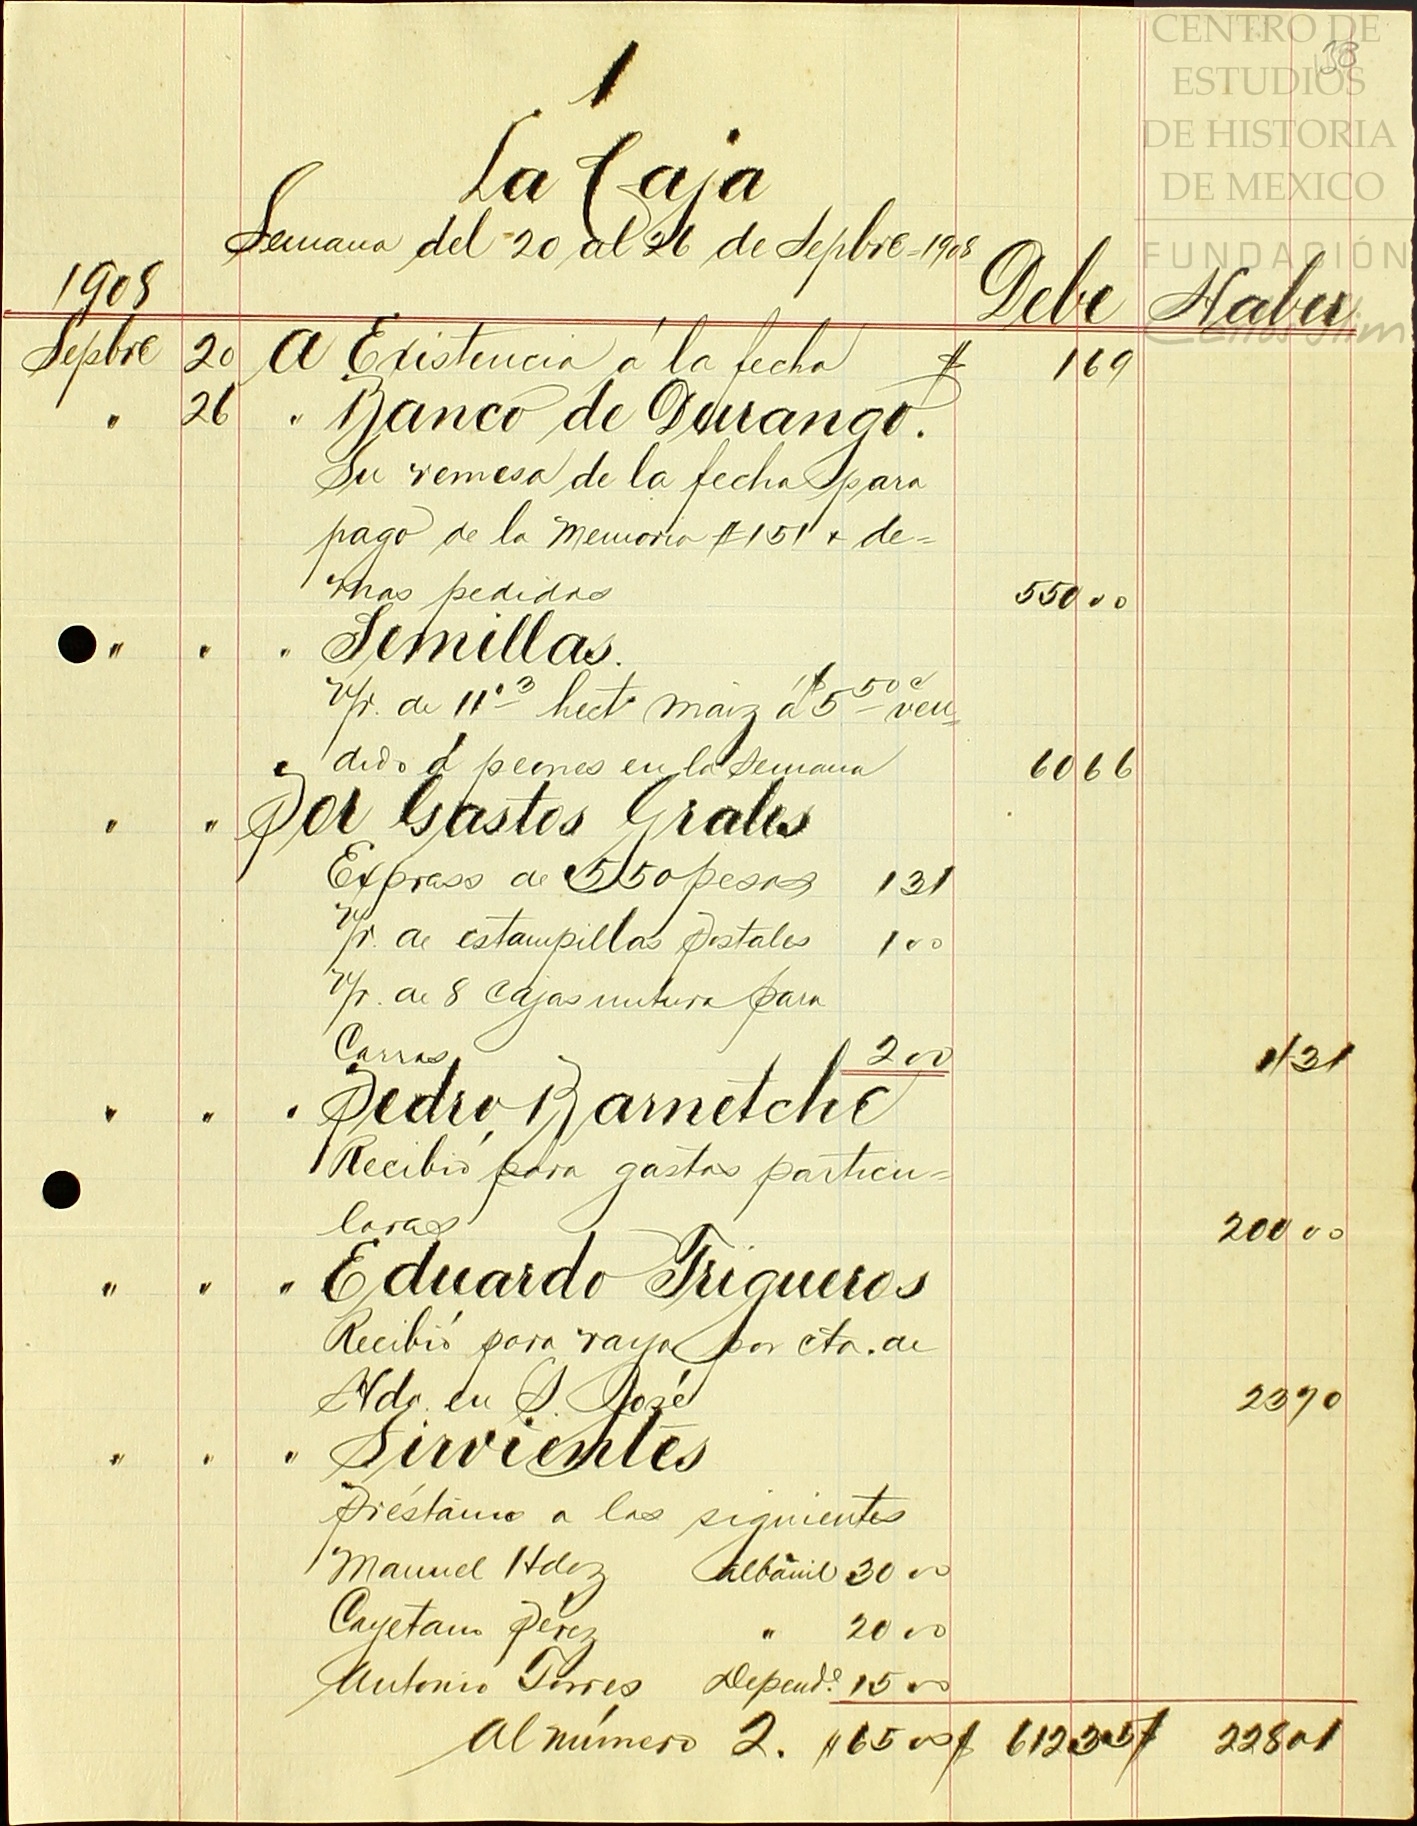 CENTRO DE
ESTUDIOS
DE HISTORIA
DE MEXICO
FUNDACIÓN
Carlos Slim
38
1
La Caja
Semana del 20 al 26 de Sepbre-1908
1908 Debe Haber
Sepbre 20 A Existencia á la fecha $ 1 69
" 26 " Banco de Durango.
Su remesa de la fecha para
pago de la Memoria #151 & de=
mas pedidos 550 00
" " " Semillas.
V/r. de 11.03 hect. maiz á $5 50c ven=
dido á peones en la semana 60 66
" " Por Gastos Grales
Express de 550 pesos 1 31
V/r. de estampillas postales 1 00
V/r. de 8 cajas untura para
Carros 2 00 4 31
" " " Pedro Barnetche
Recibió para gastos particu=
lares 200 00
" " " Eduardo Trigueros
Recibió para raya por cta. de
Hda. en S. José 23 70
" " " Sirvientes
Préstamo a los siguientes
Manuel Hdez albañil 30 00
Cayetano Pérez " 20 00
Antonio Torres Depend.e 15 00
Al número 2. $65 00 $ 612 35 $ 228 01